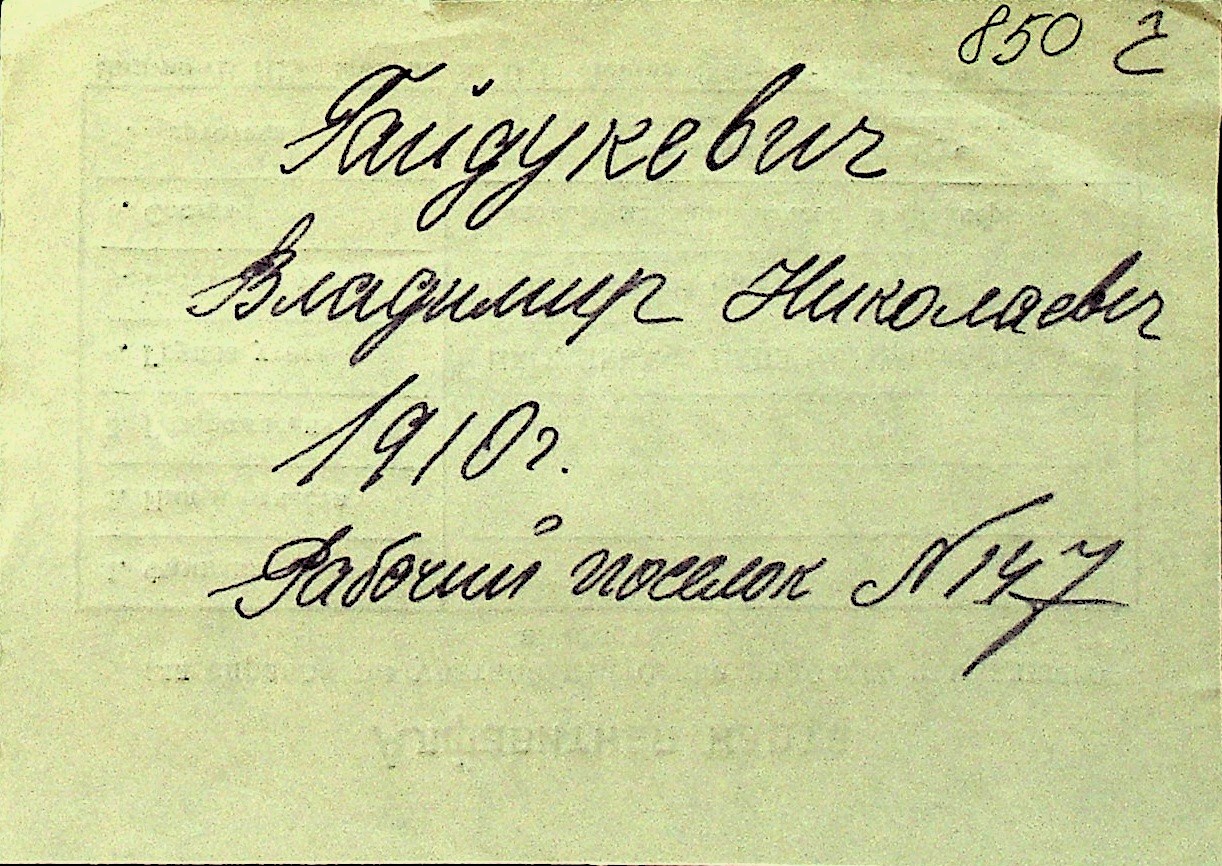 850 г
Гайдукевич
Владимир Николаевич
1910 г.
Рабочий поселок N 147